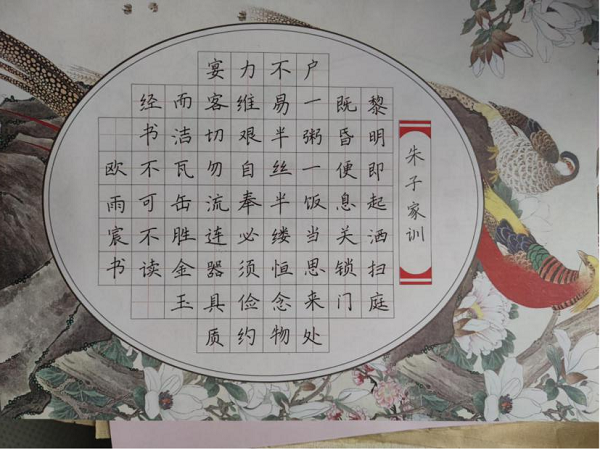 朱子家训
黎明即起洒扫庭
既昏便息关锁门
户一粥一饭当思来处
不易半丝半缕恒念物
力维艰自奉必须俭约
宴客切勿流连器具质
而洁瓦缶胜金玉
经书不可不读
欧雨宸书